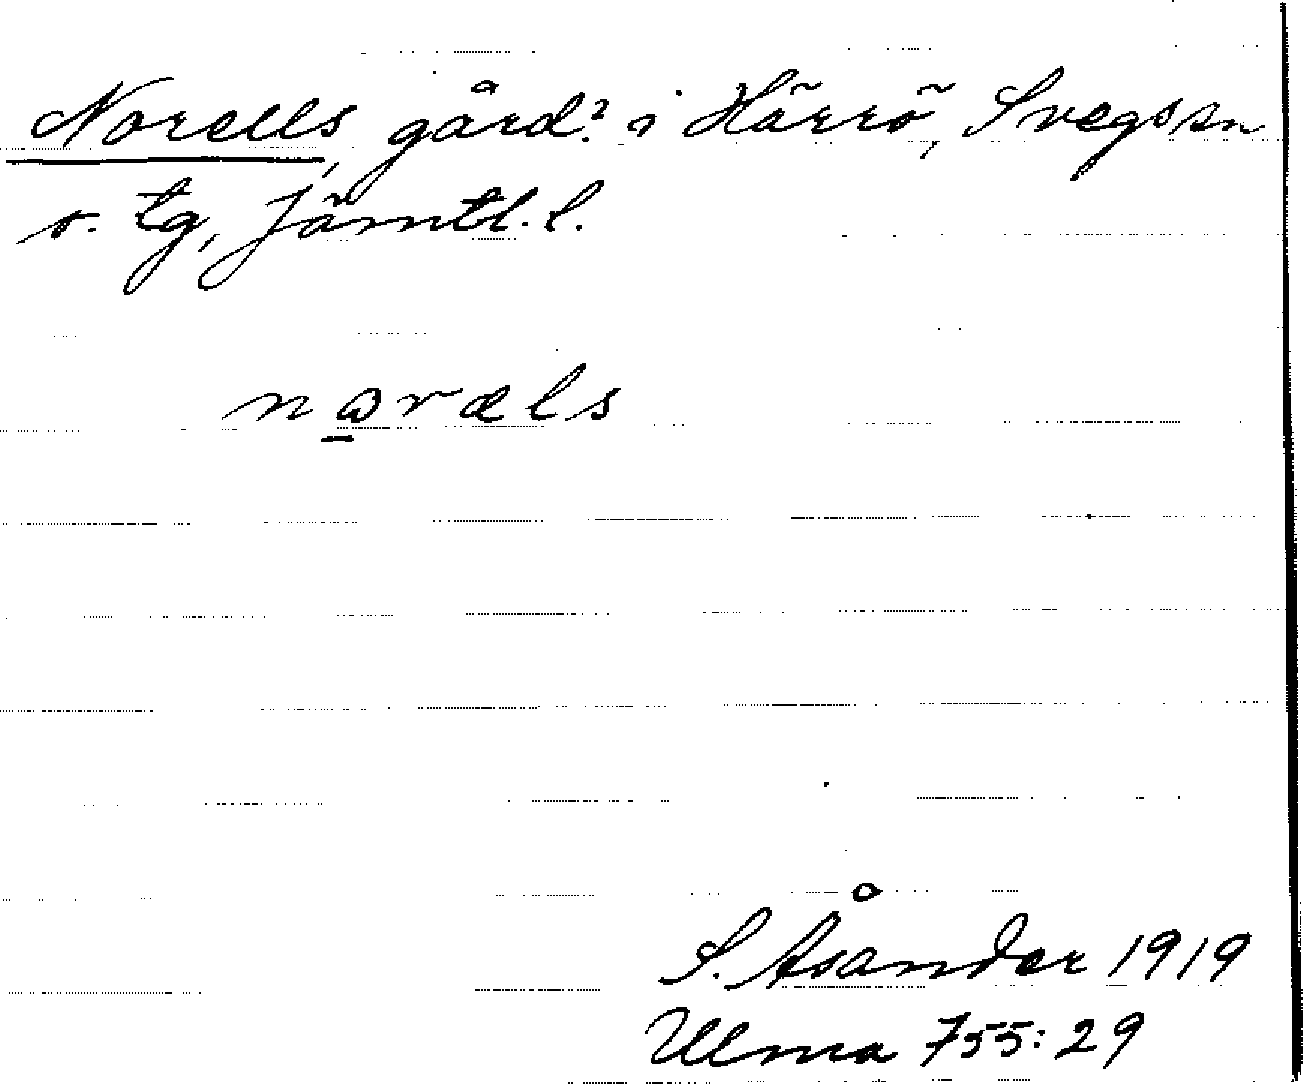 Norells, gård? i Härrö, Svegs sn
o. tg, Jämtl. l.
nωræls
S. Åsander 1919
Ulma 755:29